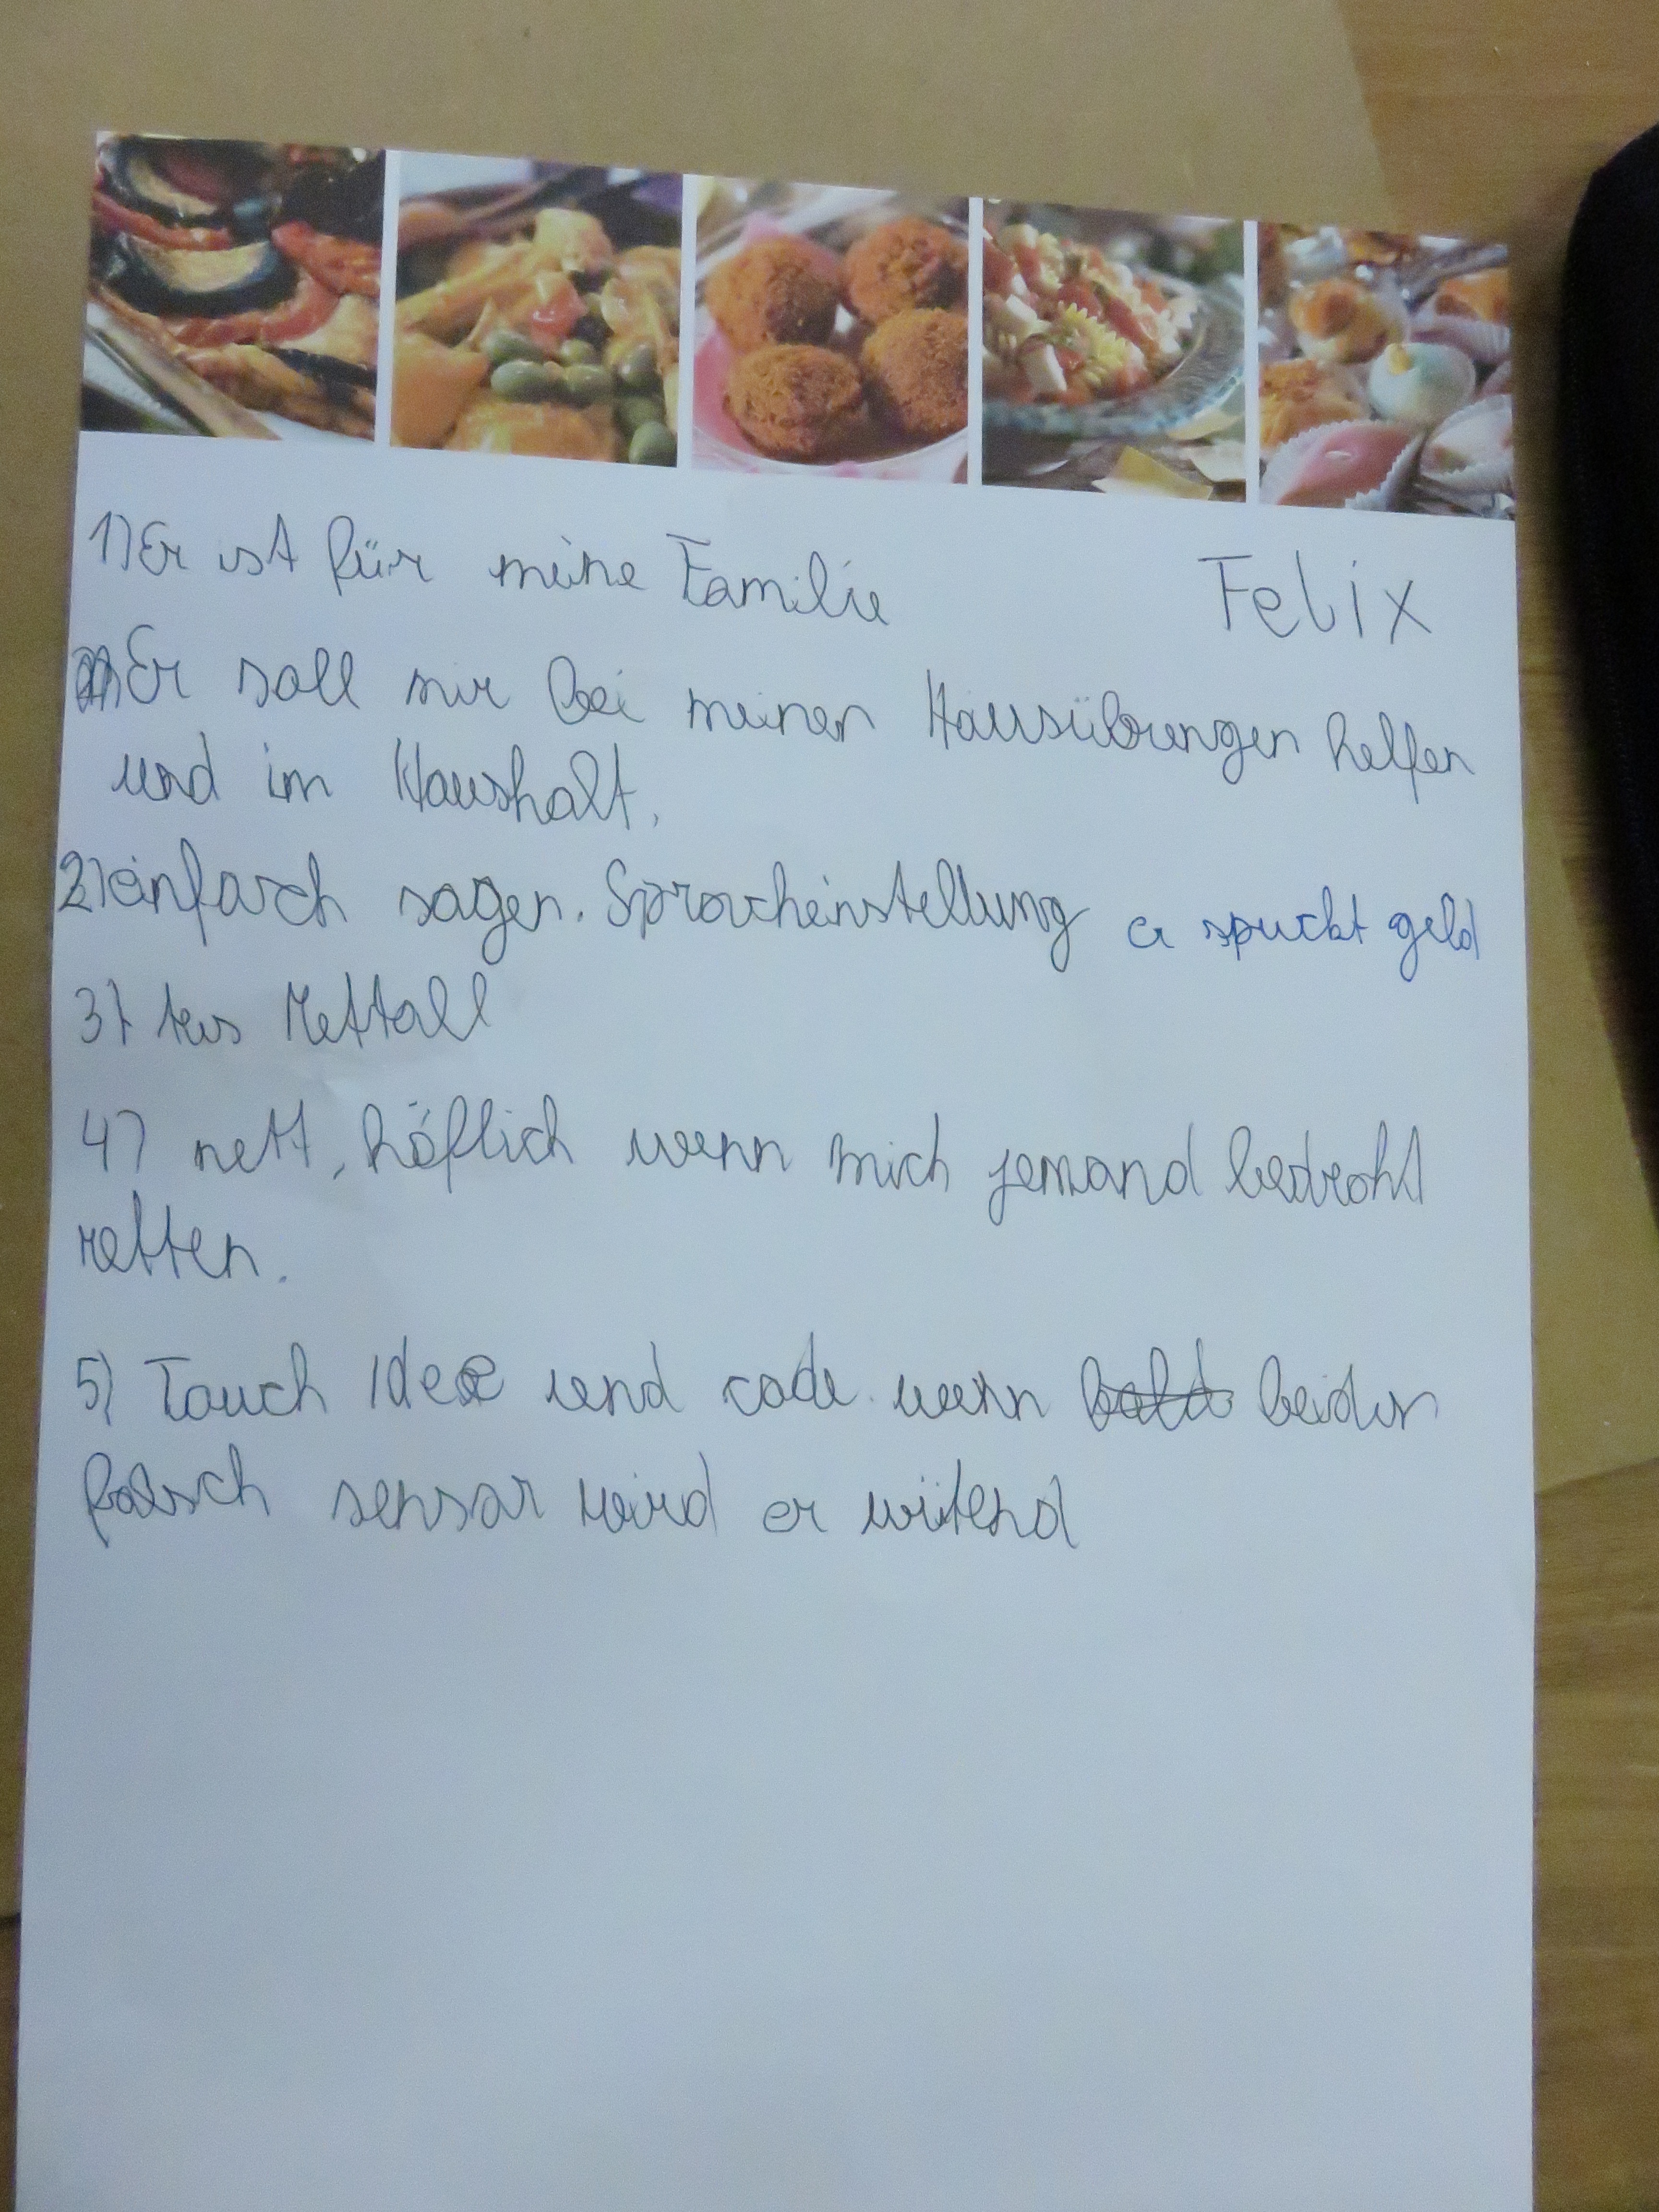 1) Er ist für meine Familie
Felix
Er soll mir bei meinen Hausübungen helfen
und im Haushalt.
2) einfach sagen. Spracheinstellung er spuckt geld
3) Aus Mettall
4) nett, höflich wenn mich jemand bedroht
retten.
5) Touch Idee und code wenn beider
falsch sensor wird er wütend